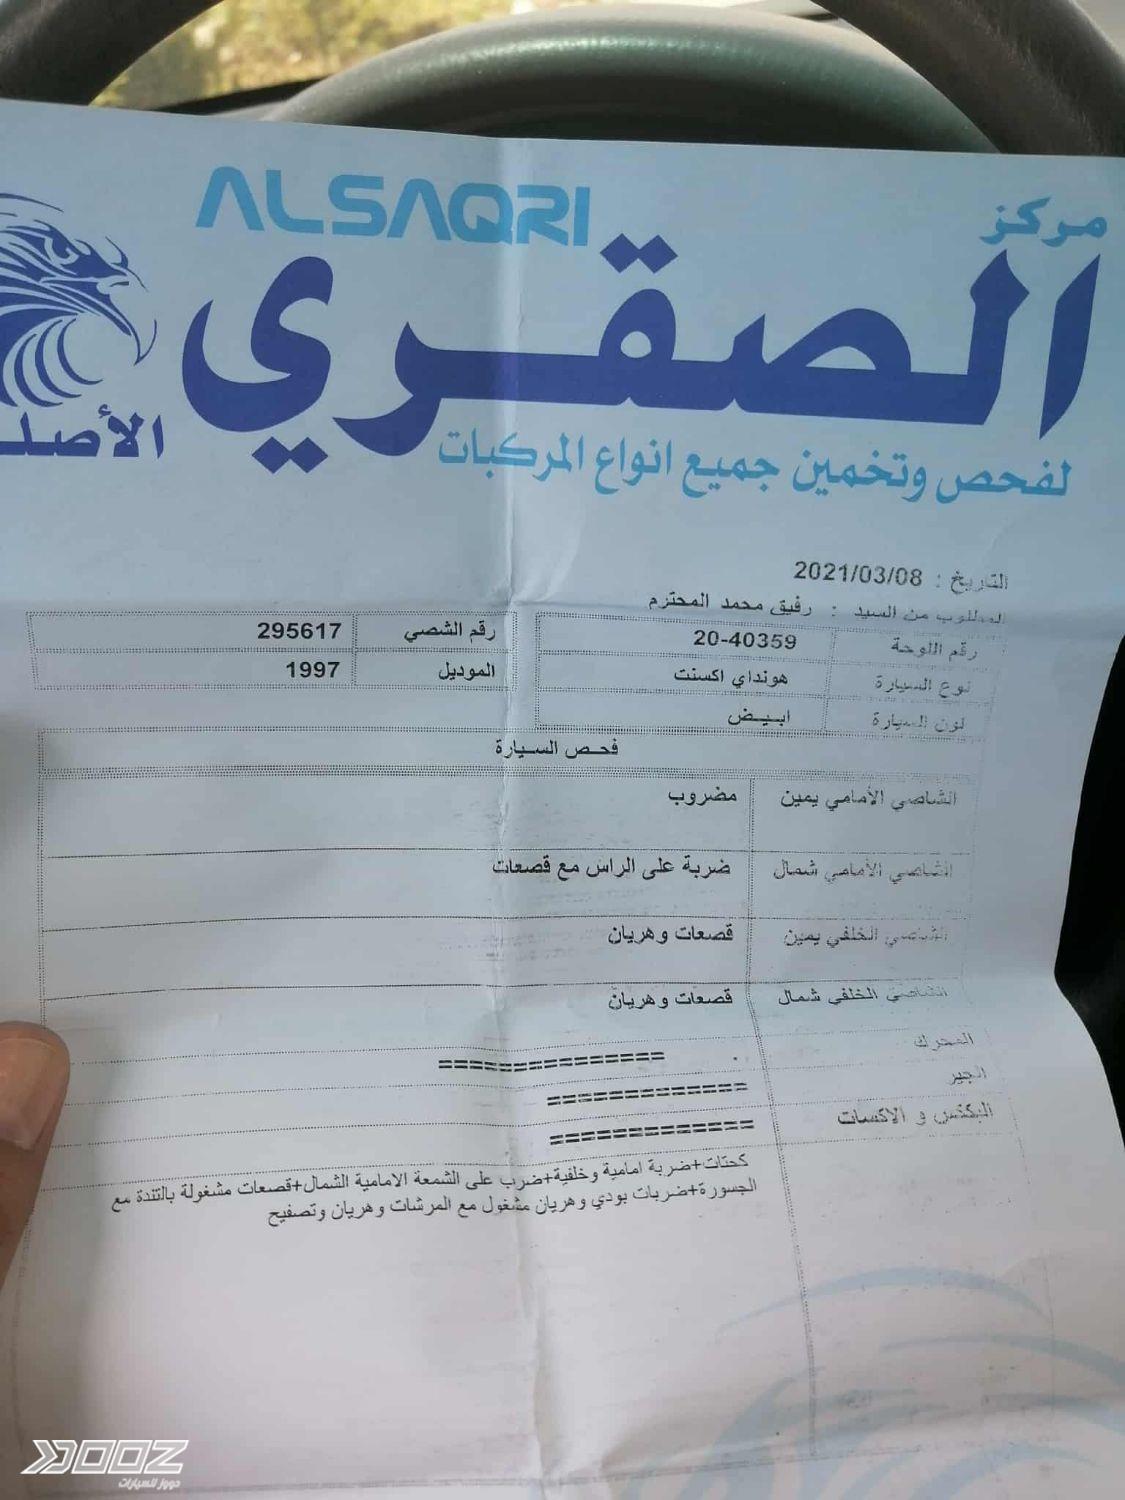 ALSAQRI
مركز
الصقري
الأصل
لفحص وتخمين جميع انواع المركبات
التاريخ : 2021/03/08
المطلوب من السيد : رفيق محمد المحترم
رقم اللوحة 20-40359 رقم الشصي 295617
نوع السيارة هونداي اكسنت الموديل 1997
لون السيارة ابيض
فحص السيارة
الشاصي الأمامي يمين مضروب
الشاصي الأمامي شمال ضربة على الراس مع قصعات
الشاصي الخلفي يمين قصعات وهريان
الشاصي الخلفي شمال قصعات وهريان
المحرك ==============
الجير =============
البكتس و الاكسات =============
كحتات+ضربة امامية وخلفية+ضرب على الشمعة الامامية الشمال+قصعات مشغولة بالتندة مع
الجسورة+ضربات بودي وهريان مشغول مع المرشات وهريان وتصفيح
DOOZ
دووز للسيارات